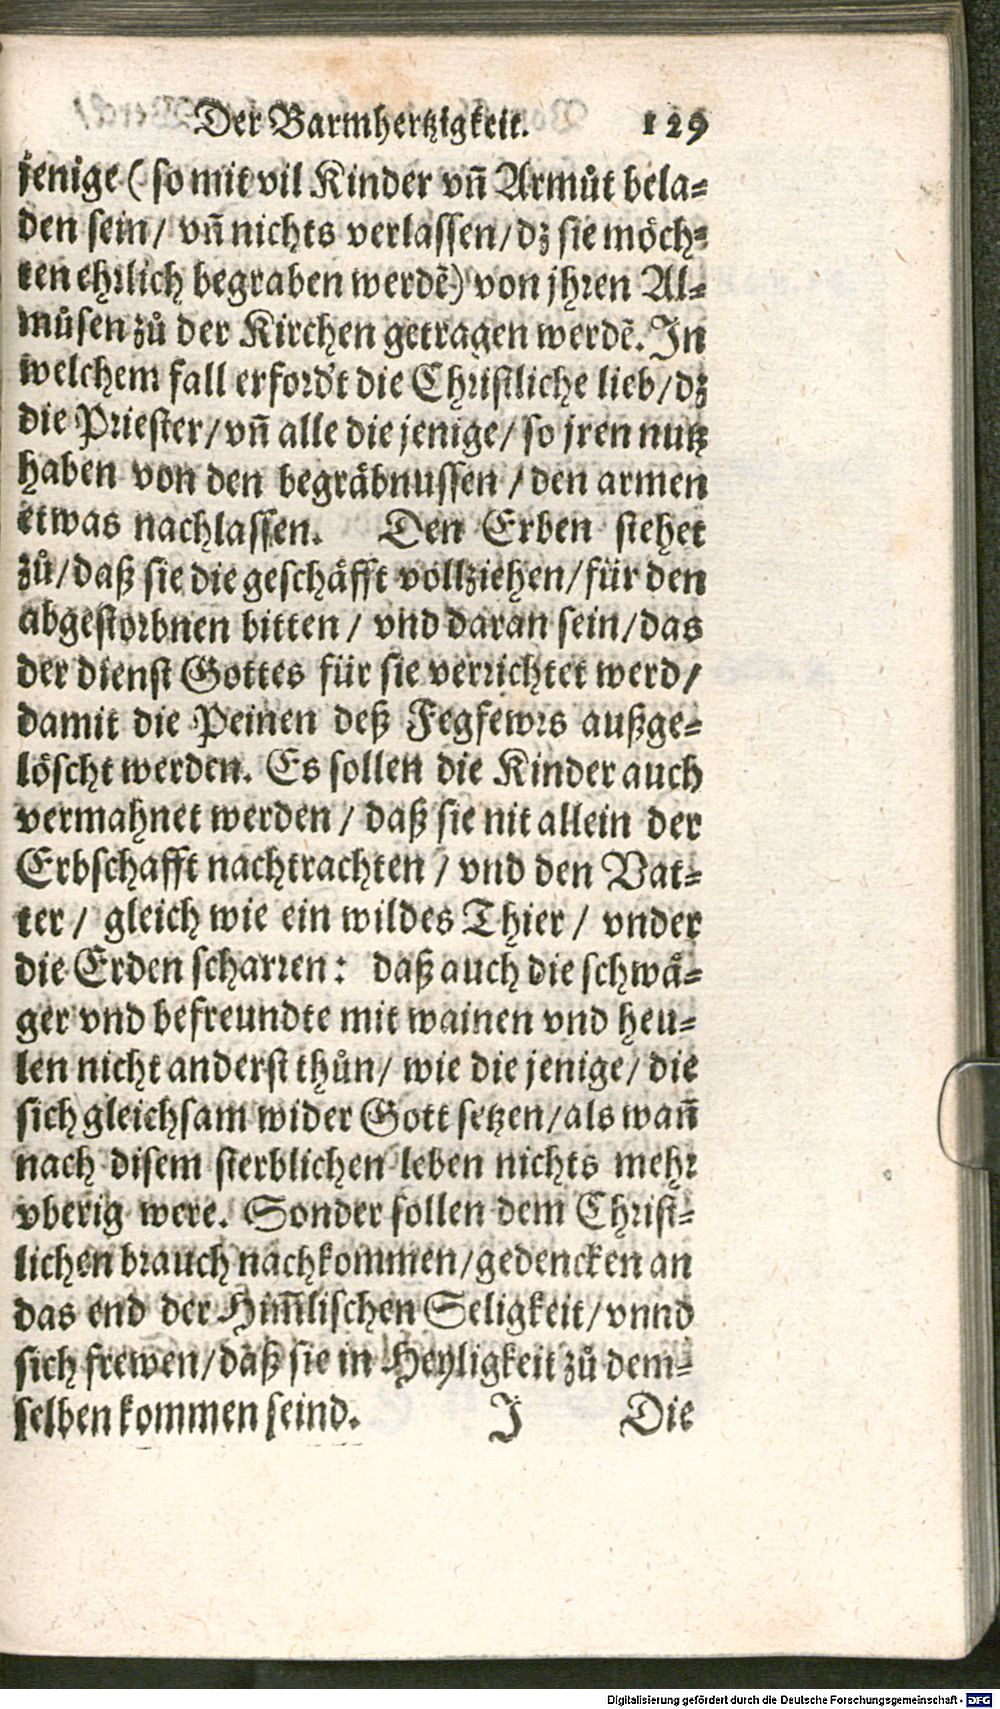 Der Barmhertzigkeit. 129
jenige (so mit vil Kinder vñ Armůt bela⸗
den sein/ vñ nichts verlassen/ dz sie möch⸗
ten ehrlich begraben werdẽ) von jhren Al⸗
můsen zů der Kirchen getragen werdẽ. In
welchem fall erford't die Christliche lieb/ dz
die Priester/ vñ alle die jenige/ so jren nutz
haben von den begräbnussen / den armen
etwas nachlassen. Den Erben stehet
zů/ daß sie die geschäfft vollziehen/ für den
abgestorbnen bitten/ vnd daran sein/ das
der dienst Gottes für sie verrichtet werd/
damit die Peinen deß Fegfewrs außge⸗
löscht werden. Es sollen die Kinder auch
vermahnet werden/ daß sie nit allein der
Erbschafft nachtrachten / vnd den Vat⸗
ter/ gleich wie ein wildes Thier/ vnder
die Erden scharren: daß auch die schwä⸗
ger vnd befreundte mit wainen vnd heu⸗
len nicht anderst thůn/ wie die jenige/ die
sich gleichsam wider Gott setzen/ als wañ
nach disem sterblichen leben nichts mehr
vberig were. Sonder sollen dem Christ⸗
lichen brauch nachkommen/ gedencken an
das end der Him̃lischen Seligkeit/ vnnd
sich frewen/ daß sie in Heyligkeit zů dem⸗
selben kommen seind. J Die
Digitalisierung gefördert durch die Deutsche Forschungsgemeinschaft - DFG